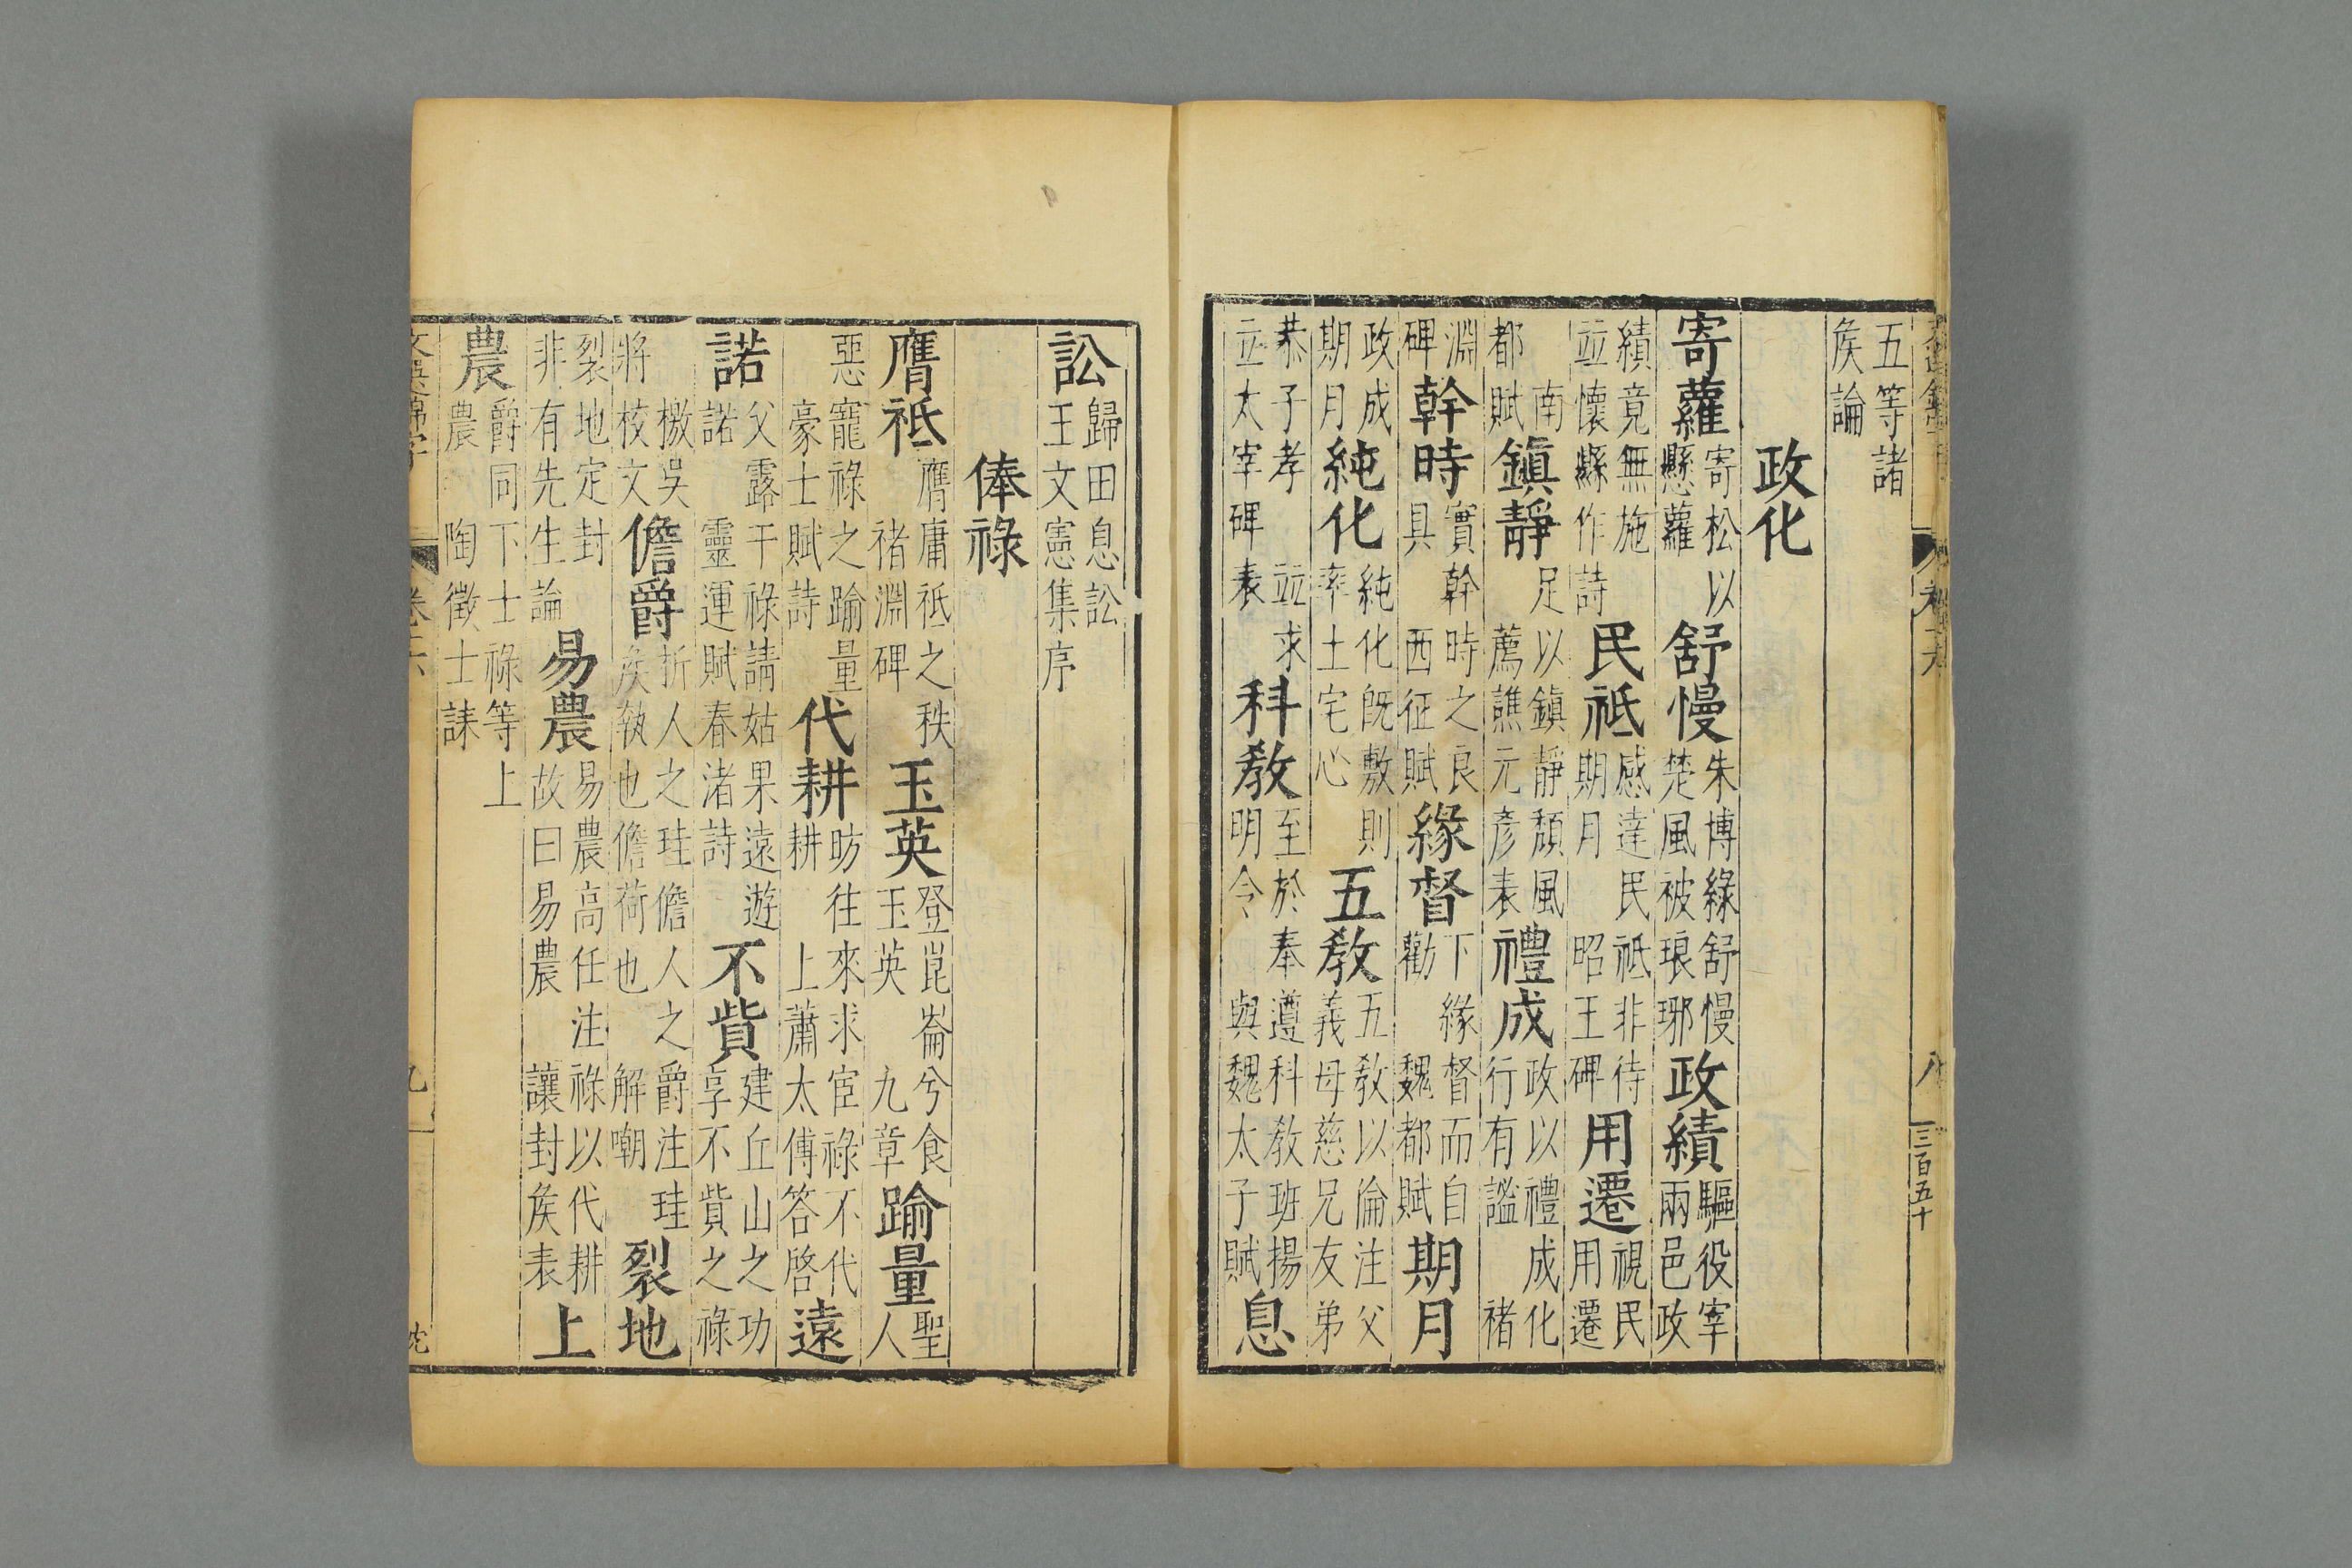 五等諸矦論
政化
寄蘿寄松以懸蘿舒慢朱博緣舒慢楚風被琅琊政績驅役宰兩邑政
績竟無施竝懷縣作詩民祗感達民祗非待期月昭王碑用遷視民用遷
南都賦鎮靜足以鎮靜頹風薦譙元彥表禮成政以禮成化行有謐褚
淵碑幹時實幹時之良具西征賦緣督下緣督而自勸魏都賦期月
政成期月純化純化既敷則率土宅心五教五教以倫注父義母慈兄友弟
恭子孝竝求立太宰碑表科教至於奉遵科教班揚明令與魏太子賦息
八
三百五十
訟歸田息訟王文憲集序
俸祿
膺祗膺庸祗之秩褚淵碑玉英登崑崙兮食玉英九章踰量聖人
惡寵祿之踰量豪士賦詩代耕昉往來求宦祿不代耕上蕭太傅答啓遠
諾父露干祿請姑果遠遊諾靈運賦春渚詩不貲建丘山之功享不貲之祿
檄吳將校文儋爵折人之珪儋人之爵注珪矦執也儋荷也解嘲裂地
裂地定封非有先生論易農易農高任注祿以代耕故曰易農讓封矦表上
農爵同下士祿等上農陶徵士誄